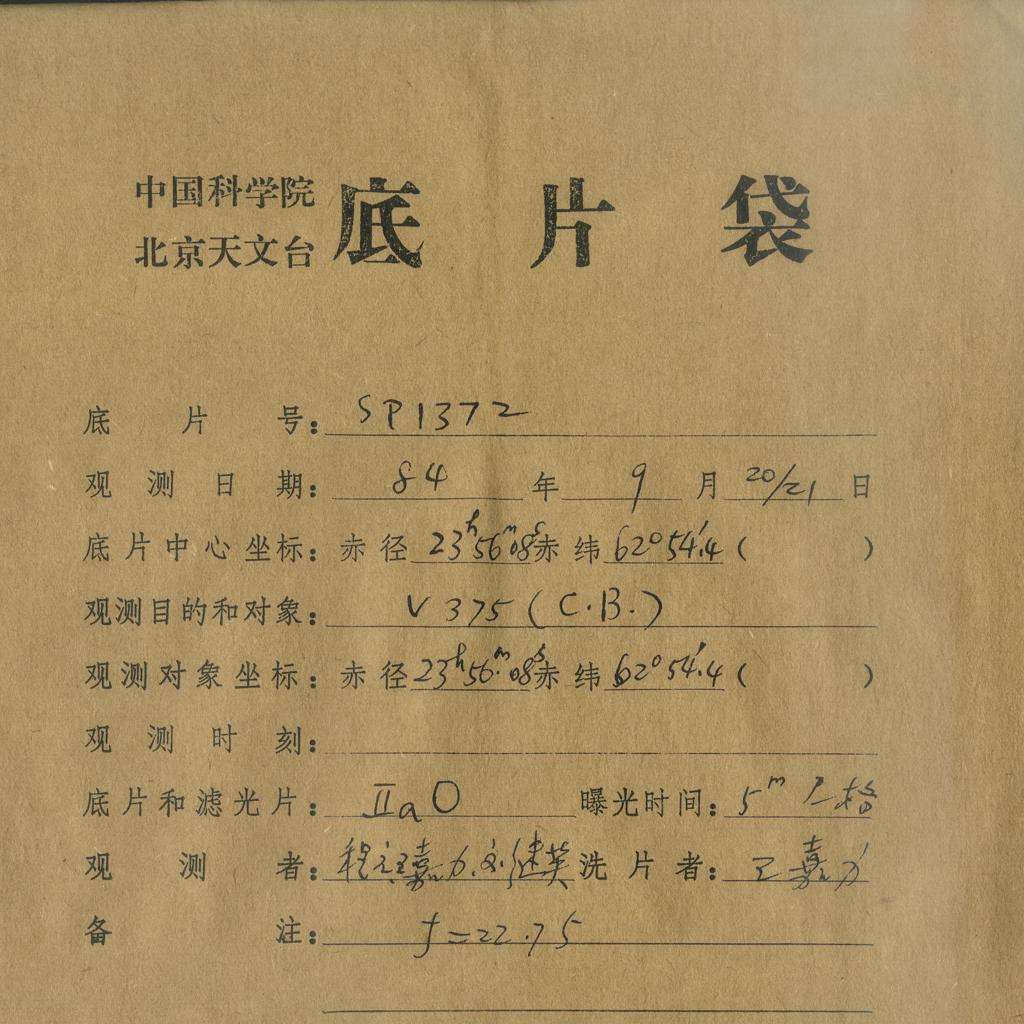 中国科学院
北京天文台
底片袋
底片号：SP1372
观测日期：84年9月20/21日
底片中心坐标：赤径23ʰ56ᵐ08ˢ赤纬62°54′.4（ ）
观测目的和对象：V375（C.B.）
观测对象坐标：赤径23ʰ56ᵐ08ˢ赤纬62°54′.4（ ）
观测时刻：
底片和滤光片：ⅡaO 曝光时间：5ᵐ
观测者：洗片者：王嘉力
备注：f=22.75